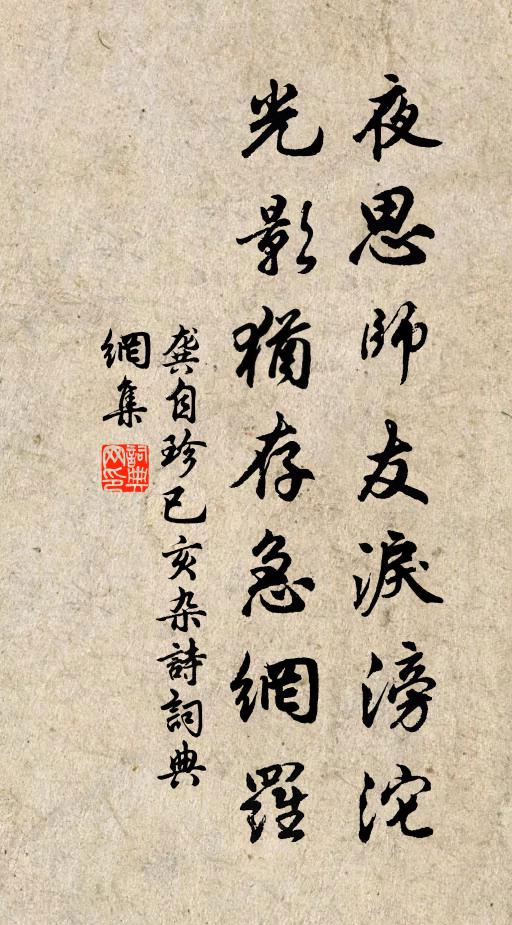 夜思師友淚滂沱
光影猶存急網羅
龔自珍己亥杂詩詞典
網集
詞典网印